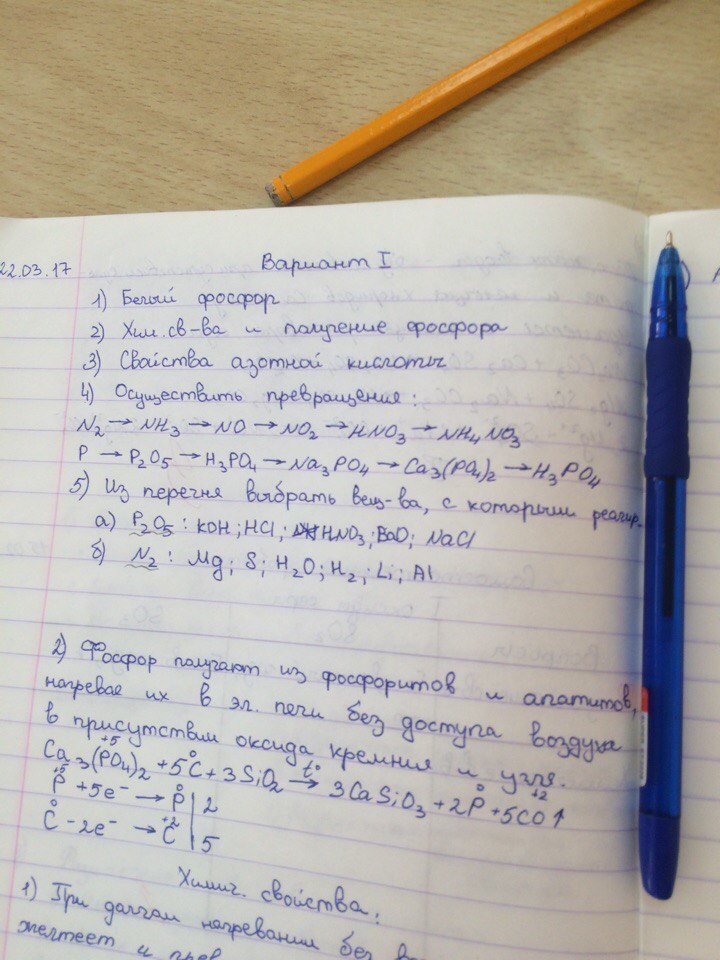 22.03.17
Вариант I
1) Белый фосфор
2) Хим. св-ва и получение фосфора
3) Свойства азотной кислоты
4) Осуществить превращения:
N₂ → NH₃ → NO → NO₂ → HNO₃ → NH₄NO₃
P → P₂O₅ → H₃PO₄ → Na₃PO₄ → Ca₃(PO₄)₂ → H₃PO₄
5) Из перечня выбрать вещ-ва, с которыми реагир.
а) P₂O₅ : KOH; HCl; HNO₃; BaO; NaCl
б) N₂ : Mg; S; H₂O; H₂; Li; Al
2) Фосфор получают из фосфоритов и апатитов,
нагревае их в эл. печи без доступа воздуха
в присутствии оксида кремния и угля.
Ca₃(P⁺⁵O₄)₂ + 5C⁰ + 3SiO₂ →t° 3CaSiO₃ + 2P⁰ + 5C⁺²O↑
P⁺⁵ + 5e⁻ → P⁰ | 2
C⁰ - 2e⁻ → C⁺² | 5
Химич. свойства:
1) При долгом нагревании без
желтеет и